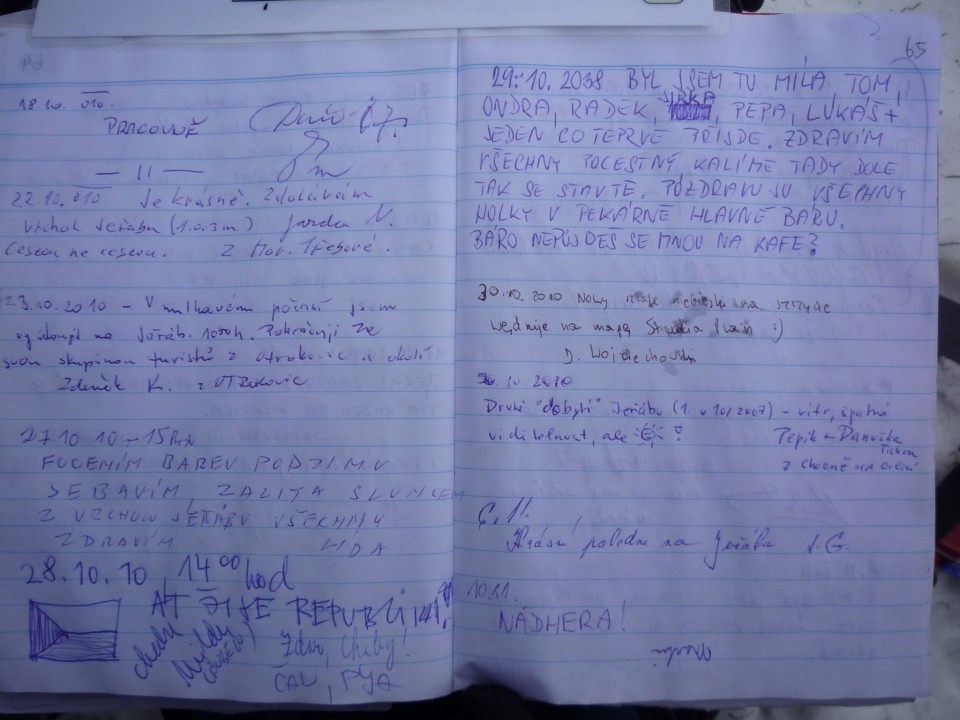 18.10. 010.
PRACOVNĚ
— 11 —
22.10. 010 Je krásně. Zdolávám
vrchol Jeřábu (1.003m) Jarda V.
Cestou ne cestou. Z Mor. Třebové.
23.10.2010 - V mlhavém počasí jsem
vystoupil na Jeřáb. 1000h. Pokračuji ze
svou skupinou turistů z Otrokovic a okolí
Zdeněk K. z Otrokovic
27.10 10 - 15
FOCENÍM BAREV PODZIMU
SE BAVÍM, ZALITA SLUNCEM
Z VRCHOLU JEŘÁBU VŠECHNY
ZDRAVÍM
28.10.10 14 00 hod
AŤ ŽIJE REPUBLIKA!
Zdar, Chlaby!
65
29.10. 2038 BYL JSEM TU MÍLA TOM,
ONDRA, RADEK, JIRKA, PEPA, LUKÁŠ +
JEDEN CO TEPRVE PŘIJDE. ZDRAVÍM
VŠECHNY POCESTNÝ KALÍME TADY DOLE
TAK SE STAVTE. POZDRAVUJU VŠECHNY
HOLKY V PEKÁRNĚ HLAVNĚ BARU.
BÁRO NEPŮJDEŠ SE MNOU NA KAFE?
30.10.2010 Nowy szlak niebieski na szczycie
wędruje na mapę Studia :)
J. Wojciechowski
30.10.2010
Druhé "dobytí" Jeřábu (1 v 10/2007) - vítr, špatná
viditelnost, ale !
Pepík + Danuška
z Chocně nad Orlicí
Krásné poledne na Jeřábu J.G.
10.11.
NÁDHERA!